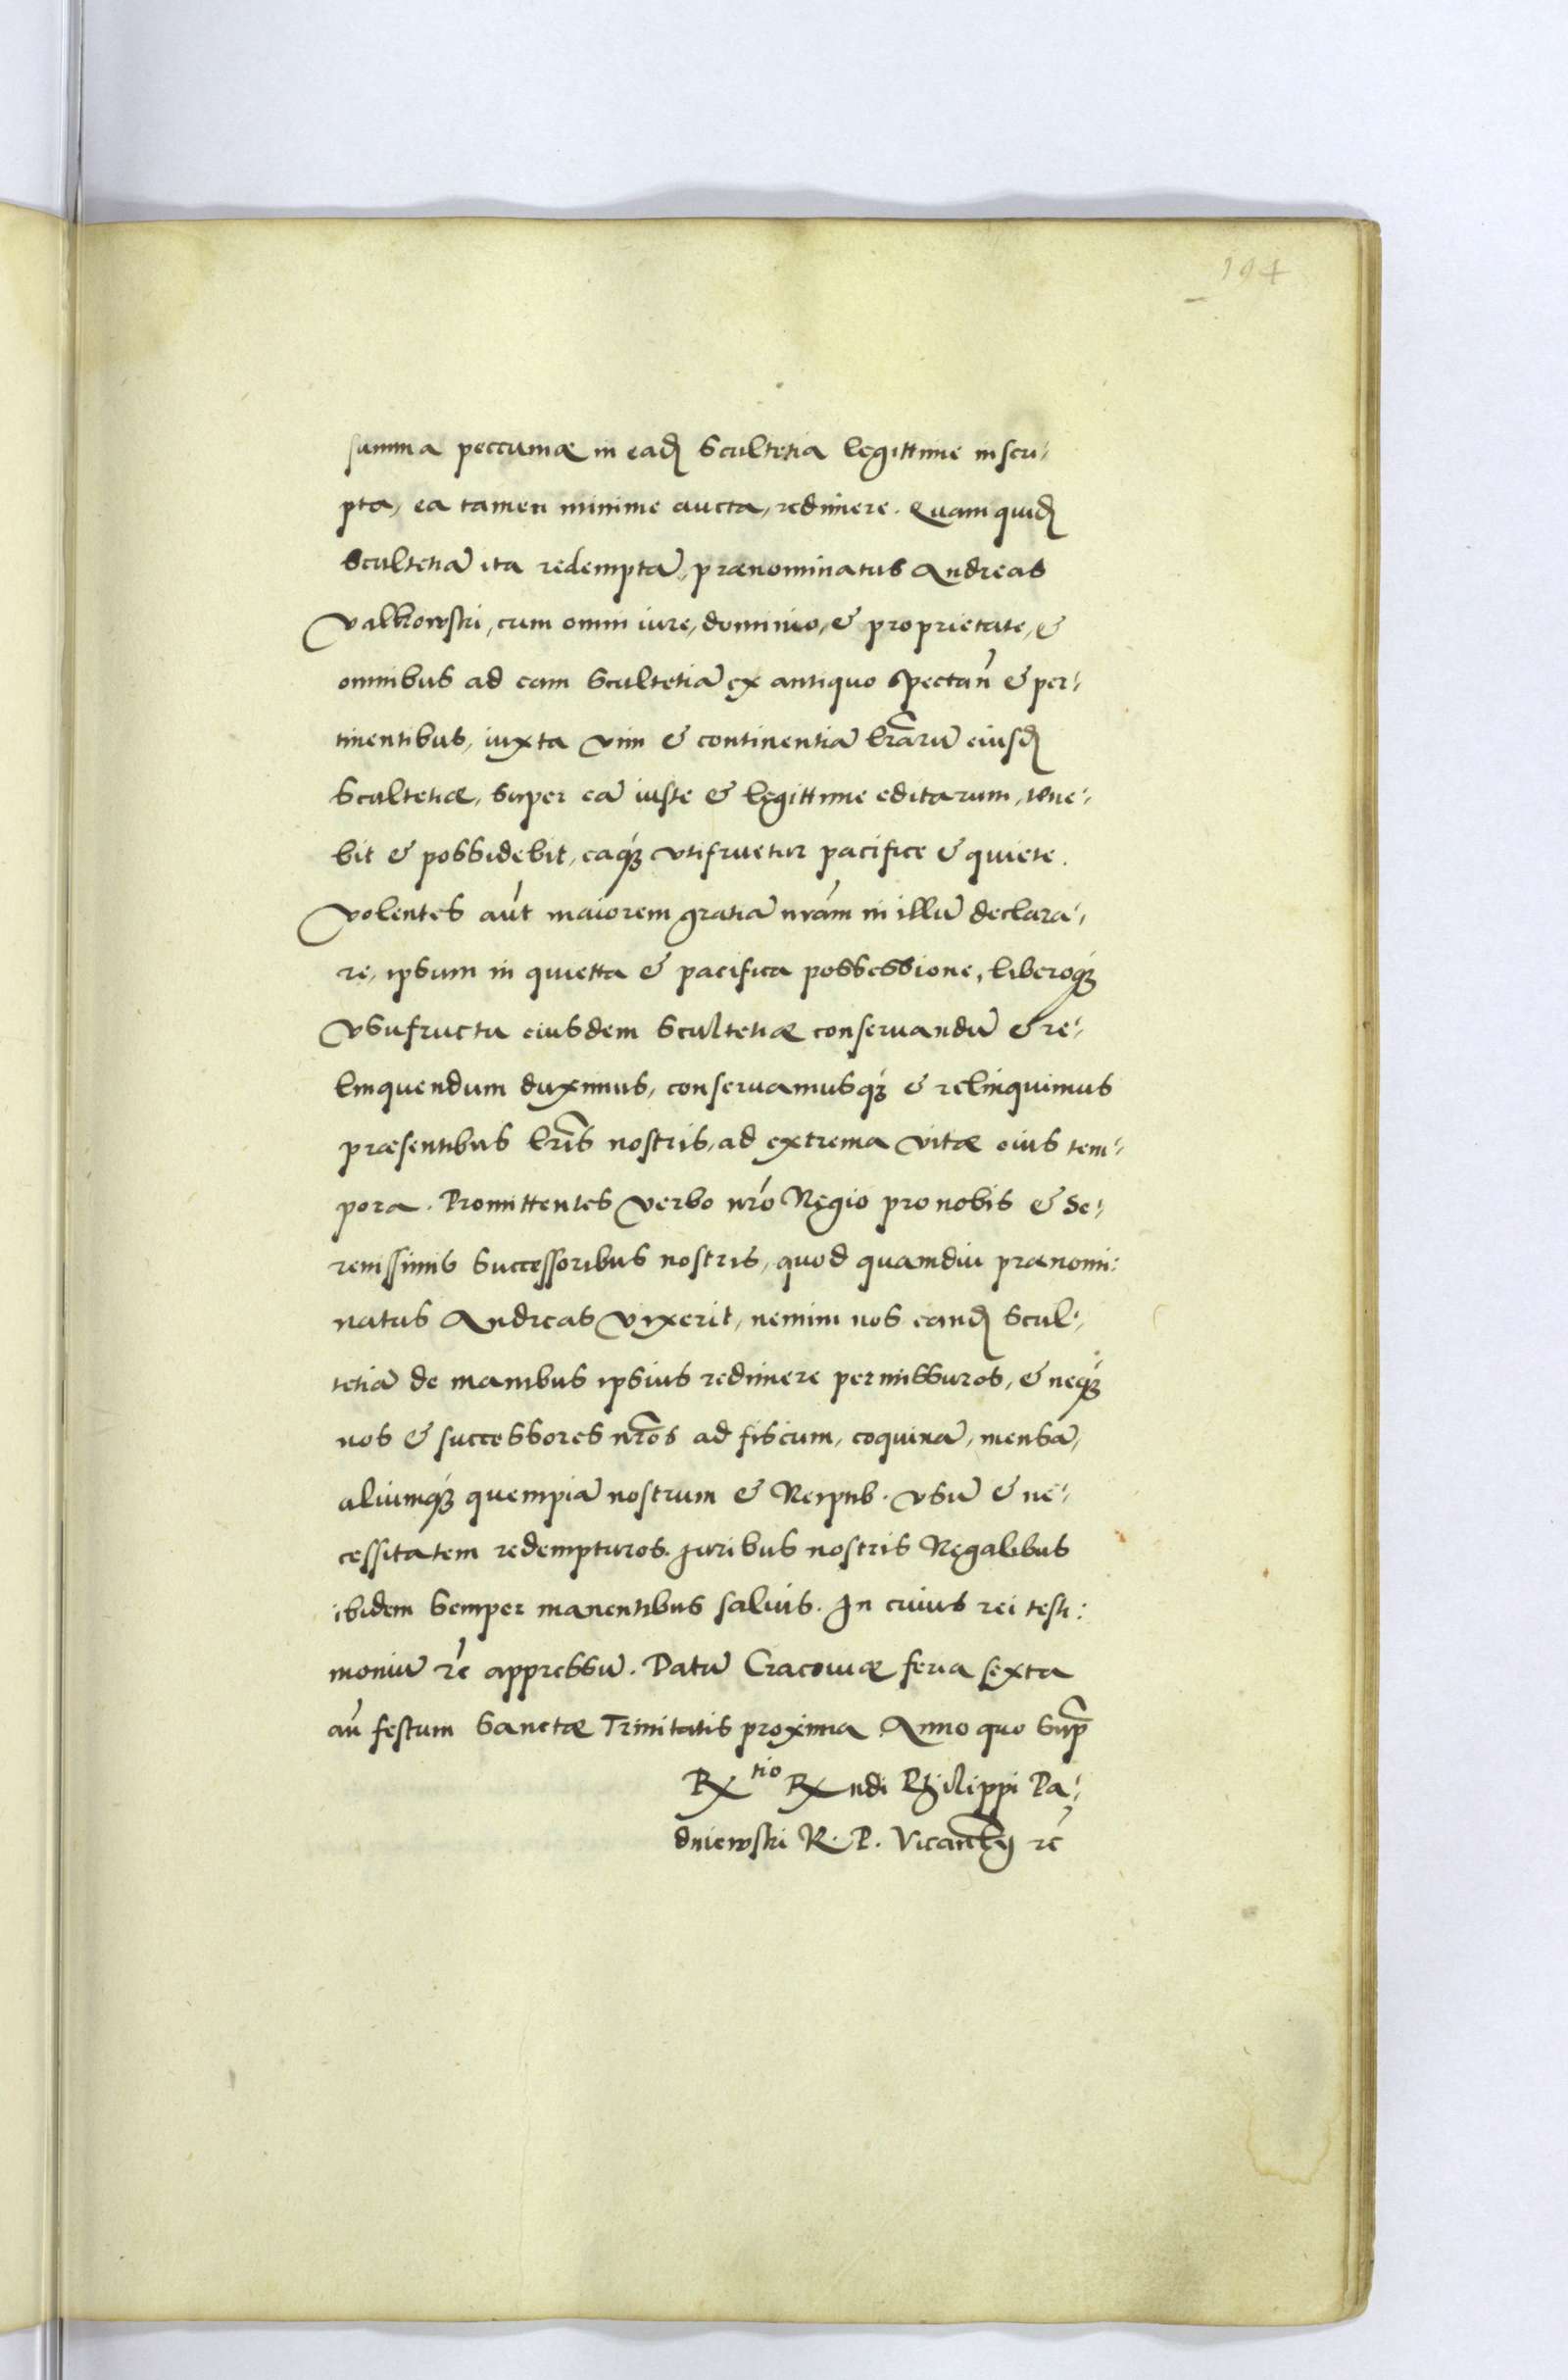 194
summa peccuniæ in eadḿ Scultetia legittime inscri-
pta, ea tamen minime aucta, redimere. Quam quidḿ
Scultetiā ita redemptā, prænominatus Andreas
Valkowski, cum omni iure, dominio, & proprietate, &
omnibus ad eam Scultetiā ex antiquo spectań & per-
tinentibus, iuxta vim & continentiā lrārū eiusdḿ
Scultetiæ, super eā iuste & legittime editarum, tene-
bit & possidebit, eaq́ꝫ vtifruetur pacifice & quiete.
Volentes aút maiorem gratiā nrám in illū declara-
re, ipsum in quietta & pacifica possessione, liberoq́ꝫ
vsufructu eiusdem Scultetiæ conseruandū & re-
linquendum duximus, conseruamusq́ꝫ & relinquimus
præsentibus lris̄ nostris, ad extrema vitæ eius tem-
pora. Promittentes verbo nró Regio pro nobis & Se-
renissimis Successoribus nostris, quod quamdiu prænomi:
natus Andreas vixerit, nemini nos eandḿ Scul-
tetiā de manibus ipsius redimere permissuros, & neq́ꝫ
nos & successores nrōs ad fiscum, coquinā, mensā,
aliumq́ꝫ quempiā nostrum & Reipub. vsū & ne-
cessitatem redempturos. Juribus nostris Regalibus
ibidem semper manentibus saluis. In cuius rei testi:
moniū rć appressū. Datū Cracouiæ feria sexta
ań festum Sanctæ Trinitatis proxima Anno quo sup̄
Rx tio Rxndi Philippi Pa-
dniewski R. P. Vicancły rć